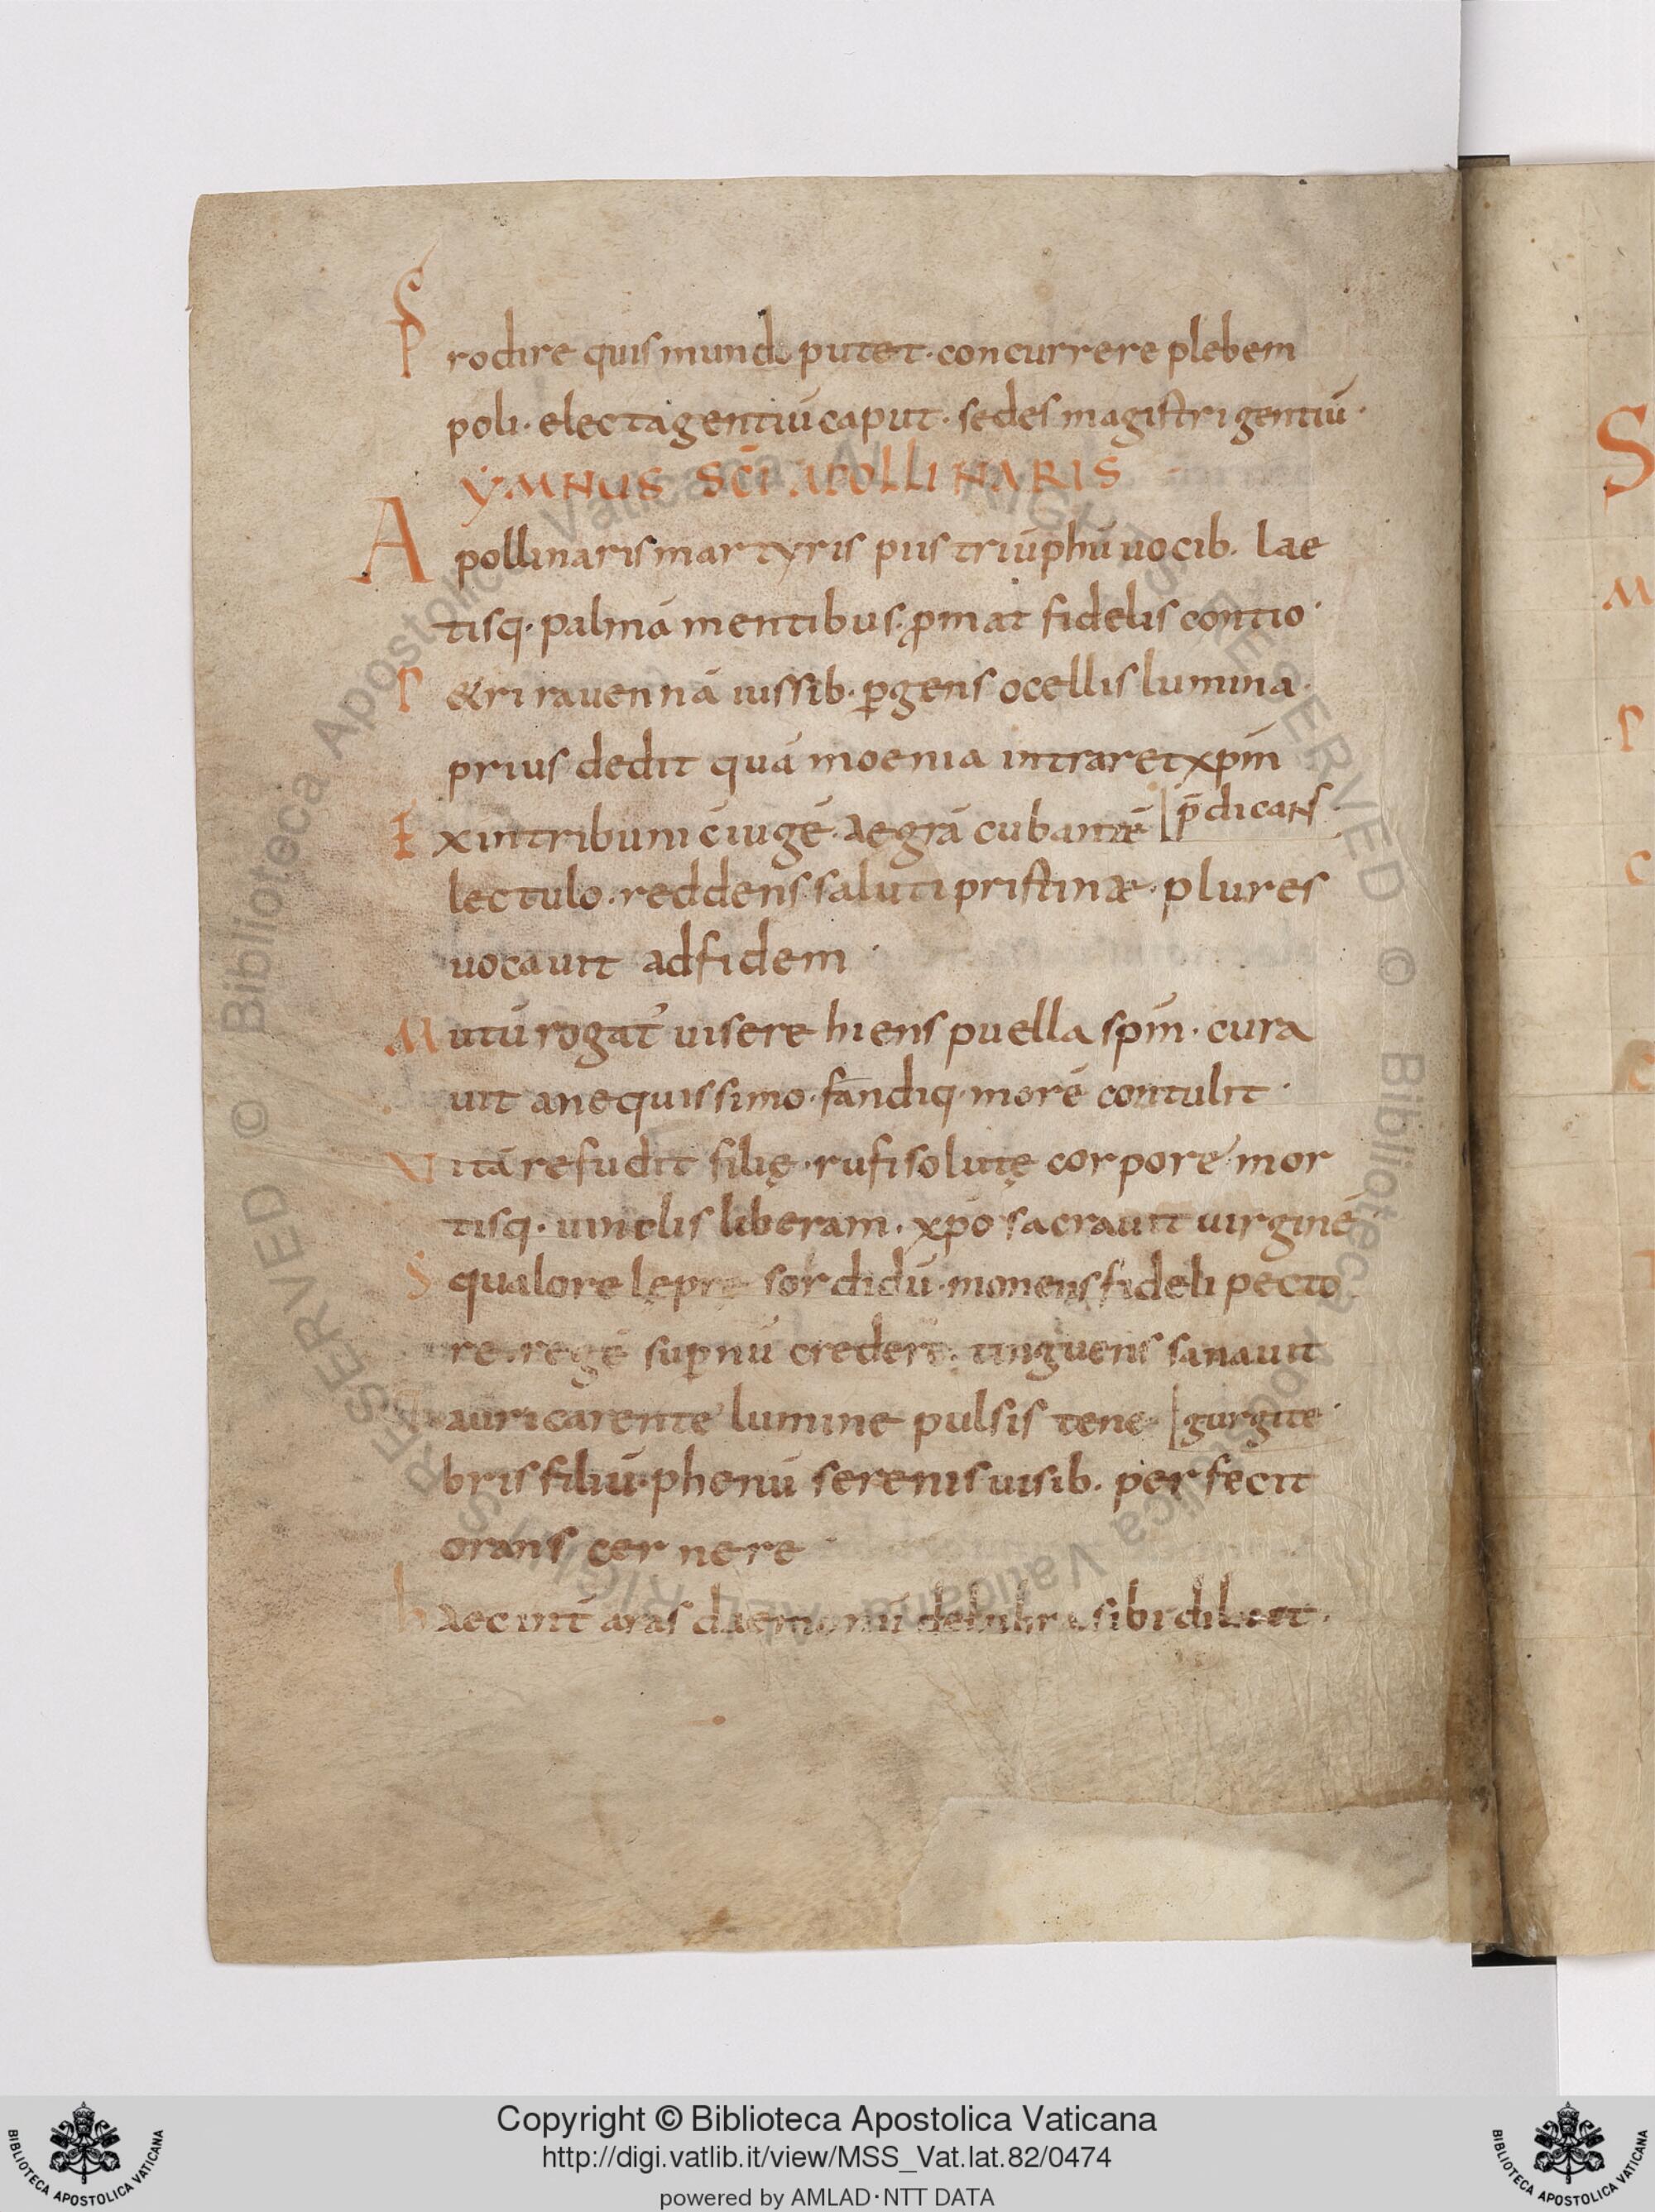 Prodire quis mundo putet · concurrere plebem
poli · electa gentiū caput · sedes magistri gentiū ·
YMNUS SC̄I APOLLINARIS
Apollinaris martyris pius triūphū uocib · lae
tisq · palmā mentibus · ꝓmat fidelis contio ·
P&ri rauennā iussib · ꝑgens ocellis lumina ·
prius dedit quā moenia intraret xp̄m
[p̄dicans ·
Exin tribuni c̄iugē · aegrā cubantē
lectulo · reddens saluti pristinæ · plures
uocauit ad fidem ·
Mutū rogat' uisere hiens puella sp̄m · cura
uit a nequissimo · fandiq · morē contulit ·
Uitā refudit filię · rufi solutę corpore mor
tisq · uinclis liberam · xp̄o sacrauit uirginē
Squalore leprę sordidū · monens fideli pecto
re · regē suꝑnū crederet · tinguens sanauit
[gurgite ·
auri carentē lumine pulsis tene
bris filiū · phonū serenis uisib · perfecit
orans cernere ·
haec int' aras daemonū delubra sibi diluit ·
Copyright © Biblioteca Apostolica Vaticana
http://digi.vatlib.it/view/MSS_Vat.lat.82/0474
powered by AMLAD·NTT DATA
BIBLIOTECA APOSTOLICA VATICANA
BIBLIOTECA APOSTOLICA VATICANA